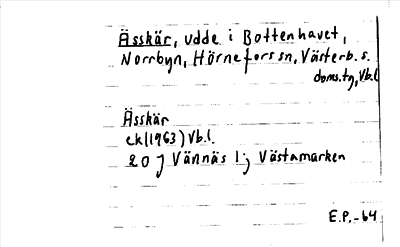 Ässkär, udde i Bottenhavet,
Norrbyn, Hörnefors sn, Västerb. s.
doms.tg, Vb.l
Ässkär
ek (1963) Vb.l.
20 J Vännäs 1 j Västamarken
E.P. -64